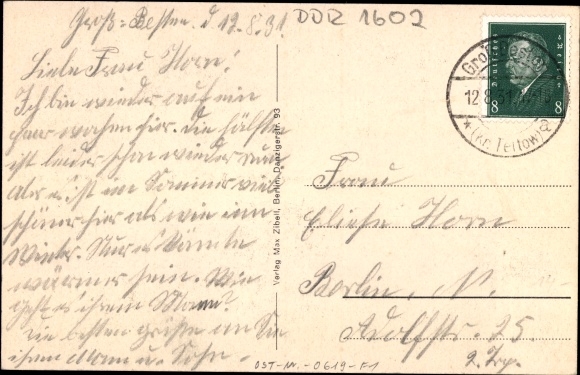 Groß-Besten. d 12.8.31.
DDR 1602
Liebe Frau Horn!
Ich bin wieder auf ein
paar wochen hier. die hälfte
ist leider schon wieder rum
Aber es ist im Sommer viel
schöner hier als wie im
Winter. Nur es könnte
wärmer sein. Wie
geht es ihrem Mann?
die besten grüße an Sie
ihren Mann u. Sohn.
Verlag Max Zibell, Berlin, Danzigerstr. 93
Deutsches Reich
8 8
Groß Besten
12.8.31
* (Kr. Teltow)
Frau
Eliese Horn
Berlin, N.
Adolfstr. 25.
2. Trp.
OST-Nr.-0619-F1